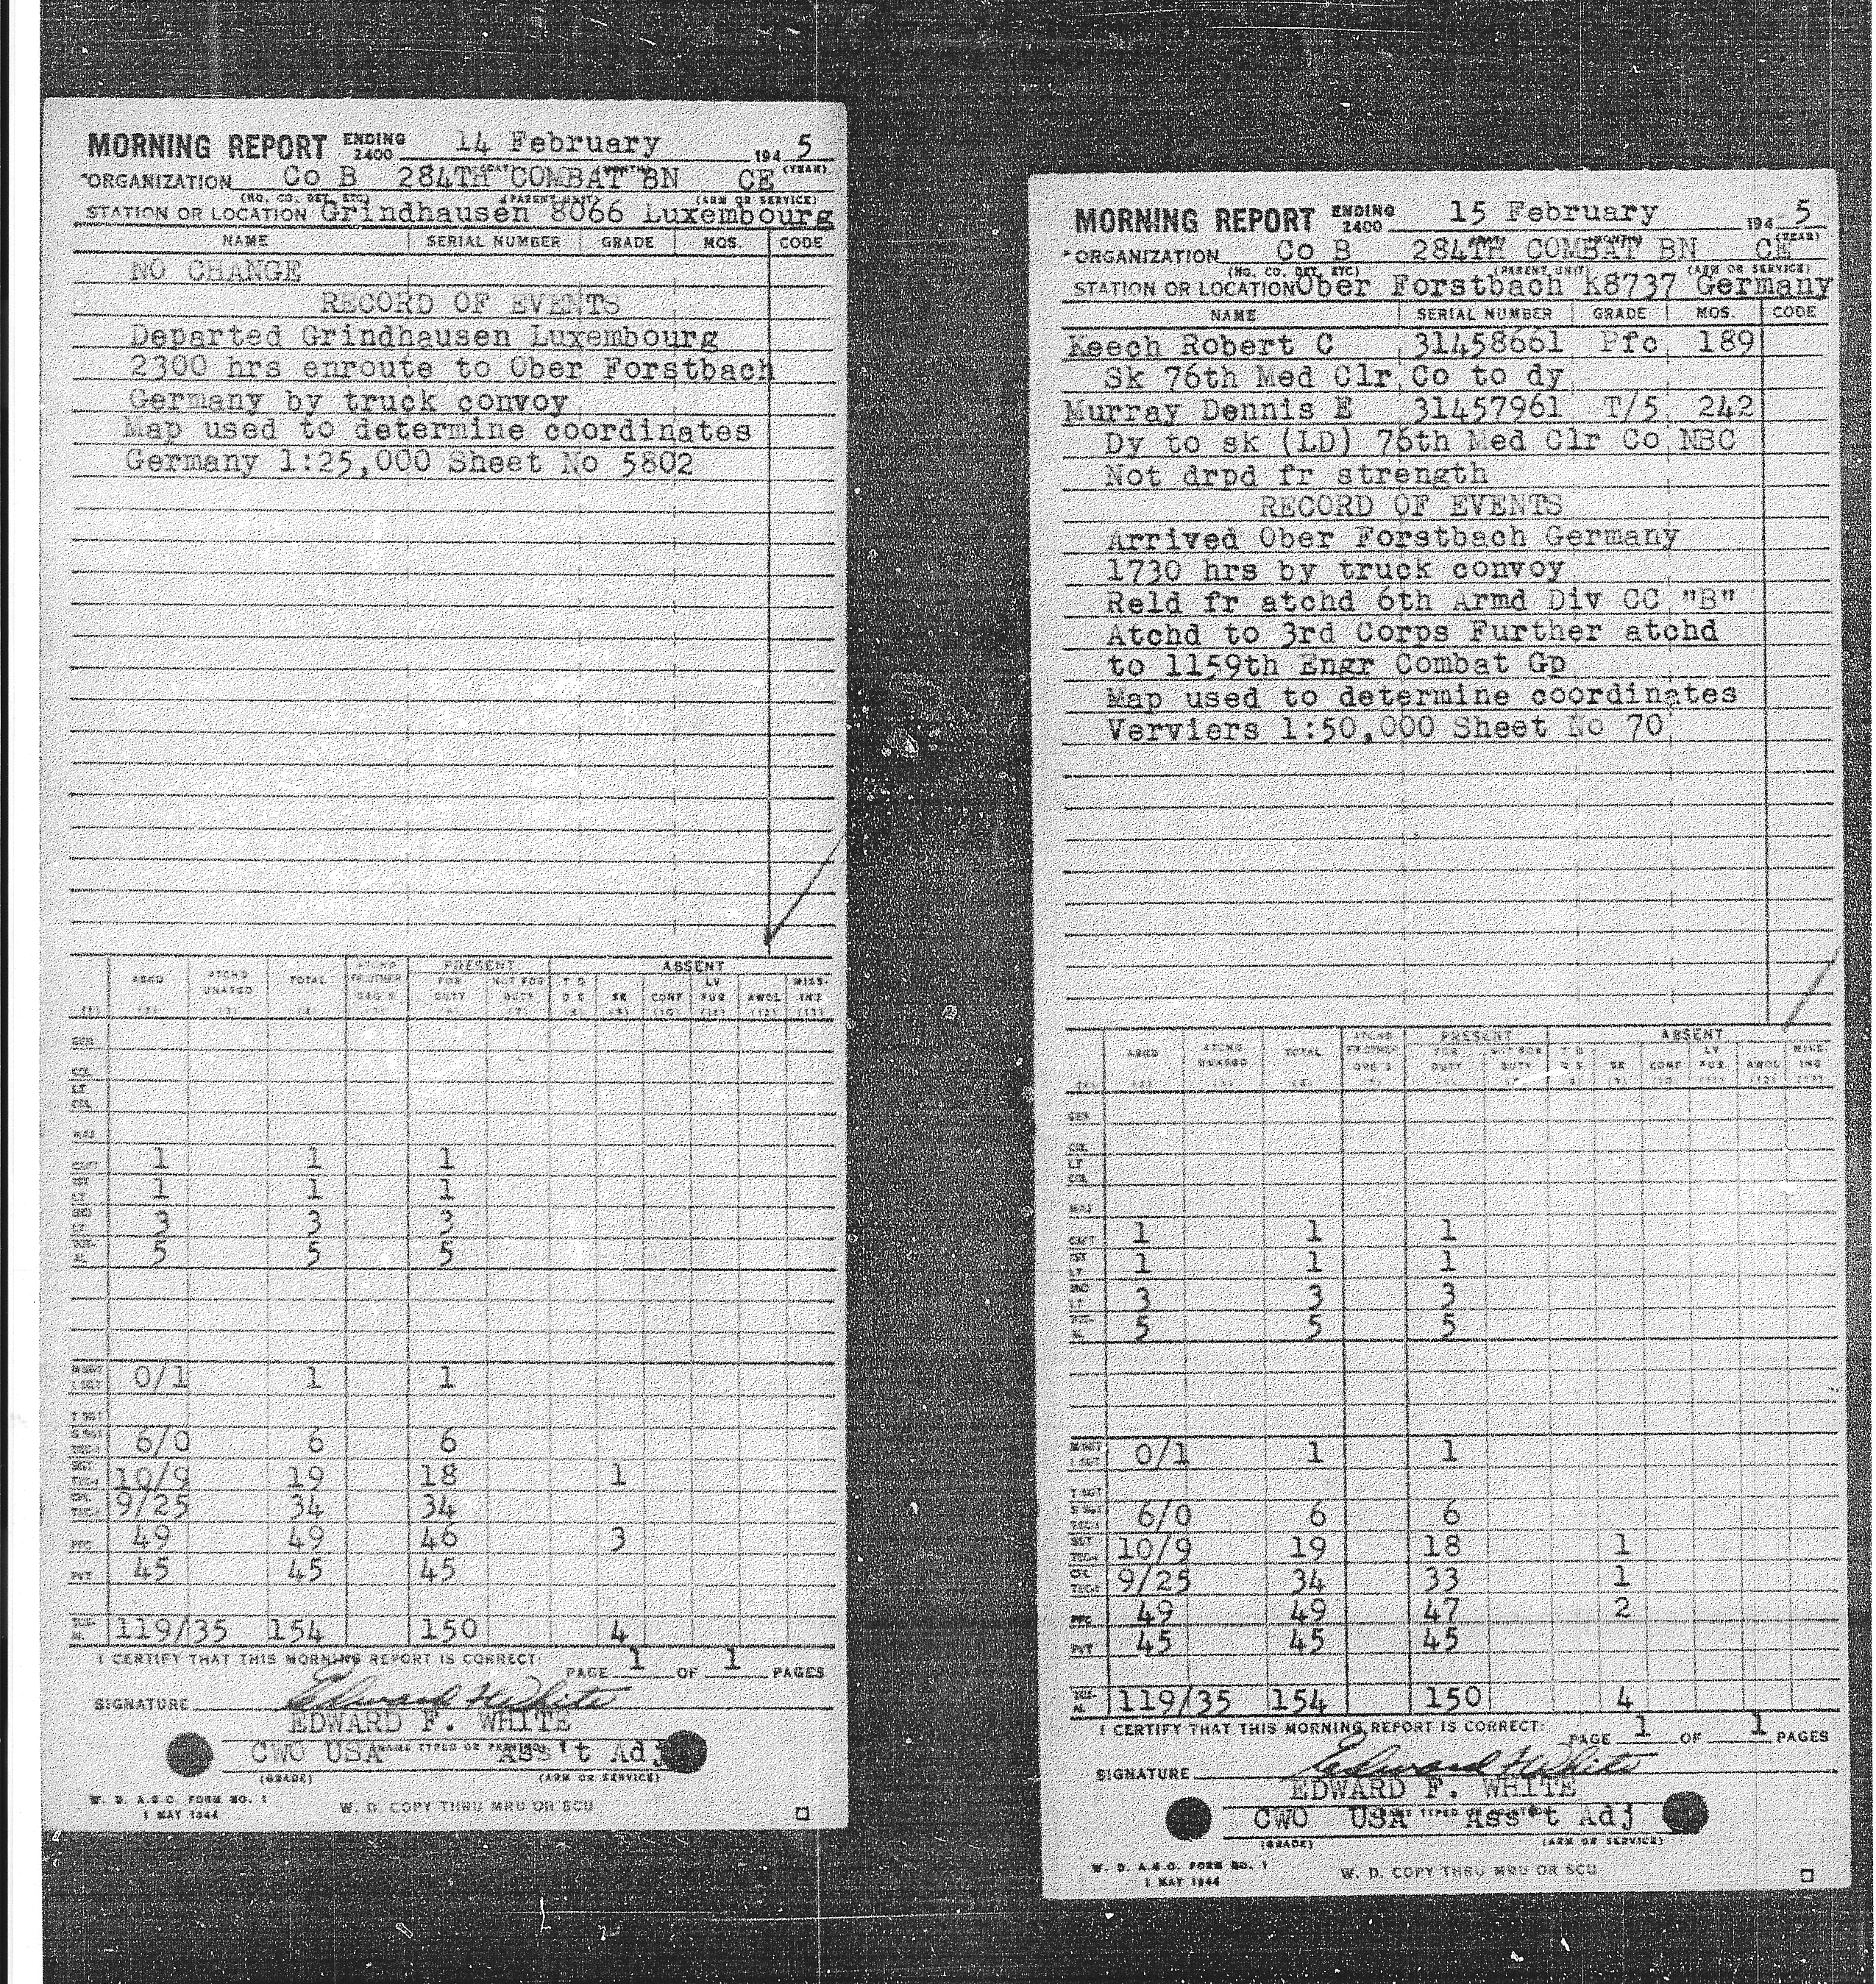 MORNING REPORT ENDING 2400 14 February 194 5
ORGANIZATION Co B 284TH COMBAT BN CE (YEAR)
(NO. CO. DET. ETC) (PARENT UNIT) (ARM OR SERVICE)
STATION OR LOCATION Grindhausen 8066 Luxembourg
NAME SERIAL NUMBER GRADE MOS. CODE
NO CHANGE
RECORD OF EVENTS
Departed Grindhausen Luxembourg
2300 hrs enroute to Ober Forstbach
Germany by truck convoy
Map used to determine coordinates
Germany 1:25,000 Sheet No 5802
PRESENT ABSENT
ASGD ATCHD UNASGD TOTAL ATCHD FR OTHER ORG'S FOR DUTY NOT FOR DUTY T D D S SK CONF LV FUR AWOL MISS-ING
(1) (2) (3) (4) (5) (6) (7) (8) (9) (10) (11) (12) (13)
GEN
COL
LT COL
MAJ
CAPT 1 1 1
1ST LT 1 1 1
2ND LT 3 3 3
5 5 5
M SGT 1 SGT 0/1 1 1
T SGT
S SGT TECH 6/0 6 6
SGT 10/9 19 18 1
9/25 34 34
PFC 49 49 46 3
PVT 45 45 45
119/35 154 150 4
I CERTIFY THAT THIS MORNING REPORT IS CORRECT:
PAGE 1 OF 1 PAGES
SIGNATURE Edward F White
EDWARD F. WHITE
(NAME TYPED OR PRINTED)
CWO USA Ass't Adj
(GRADE) (ARM OR SERVICE)
W. D. A.G.O. FORM NO. 1
1 MAY 1944
W. D. COPY THRU MRU OR SCU
MORNING REPORT ENDING 2400 15 February 194 5
ORGANIZATION Co B 284TH COMBAT BN CE (YEAR)
(NO. CO. DET. ETC) (PARENT UNIT) (ARM OR SERVICE)
STATION OR LOCATION Ober Forstbach K8737 Germany
NAME SERIAL NUMBER GRADE MOS. CODE
Keech Robert C 31458661 Pfc 189
Sk 76th Med Clr Co to dy
Murray Dennis E 31457961 T/5 242
Dy to sk (LD) 76th Med Clr Co NBC
Not drpd fr strength
RECORD OF EVENTS
Arrived Ober Forstbach Germany
1730 hrs by truck convoy
Reld fr atchd 6th Armd Div CC "B"
Atchd to 3rd Corps Further atchd
to 1159th Engr Combat Gp
Map used to determine coordinates
Verviers 1:50,000 Sheet No 70
PRESENT ABSENT
ASGD ATCHD UNASGD TOTAL ATCHD FR OTHER ORG'S FOR DUTY NOT FOR DUTY T D D S SK CONF LV FUR AWOL MISS-ING
GEN
COL
LT COL
MAJ
CAPT 1 1 1
1ST LT 1 1 1
2ND LT 3 3 3
5 5 5
M SGT 1 SGT 0/1 1 1
T SGT
S SGT TECH 6/0 6 6
SGT 10/9 19 18 1
9/25 34 33 1
PFC 49 49 47 2
PVT 45 45 45
119/35 154 150 4
I CERTIFY THAT THIS MORNING REPORT IS CORRECT:
PAGE 1 OF 1 PAGES
SIGNATURE Edward F White
EDWARD F. WHITE
(NAME TYPED OR PRINTED)
CWO USA Ass't Adj
(GRADE) (ARM OR SERVICE)
W. D. A.G.O. FORM NO. 1
1 MAY 1944
W. D. COPY THRU MRU OR SCU